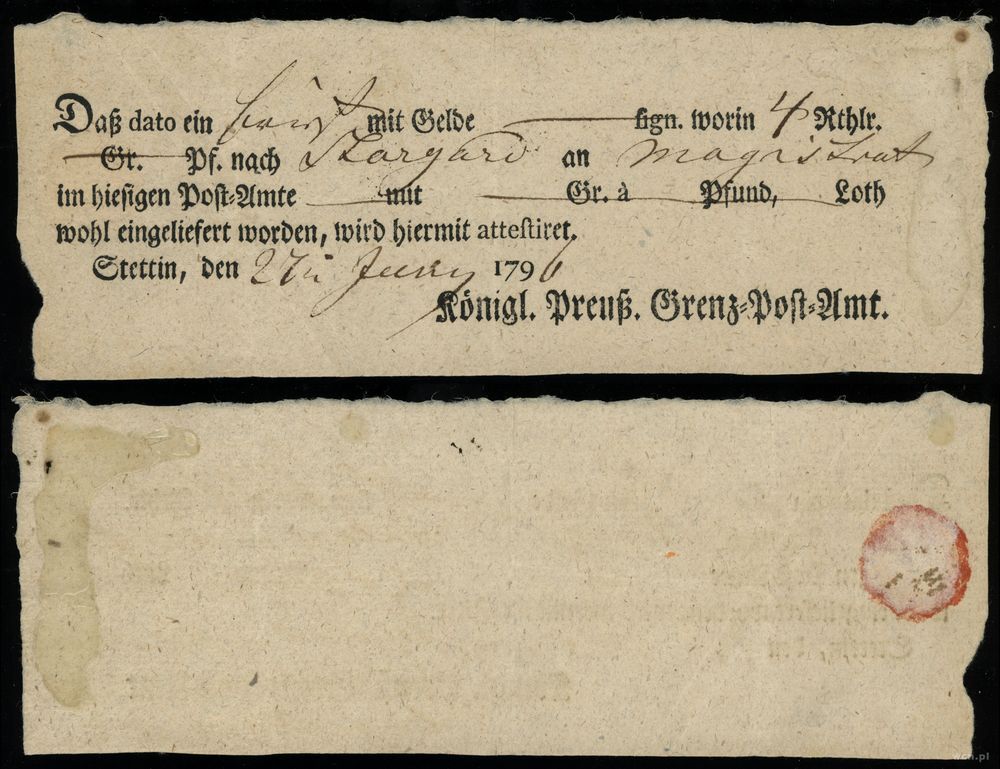 Daß dato ein brief mit Gelde sign. worin 4 Rthlr.
Gr. Pf. nach Stargard an Magistrat
im hiesigen Post=Amte mit Gr. à Pfund, Loth
wohl eingeliefert worden, wird hiermit attestiret.
Stettin, den 27 Juny 1796
Königl. Preuß. Grenz=Post=Amt.
wcn.pl